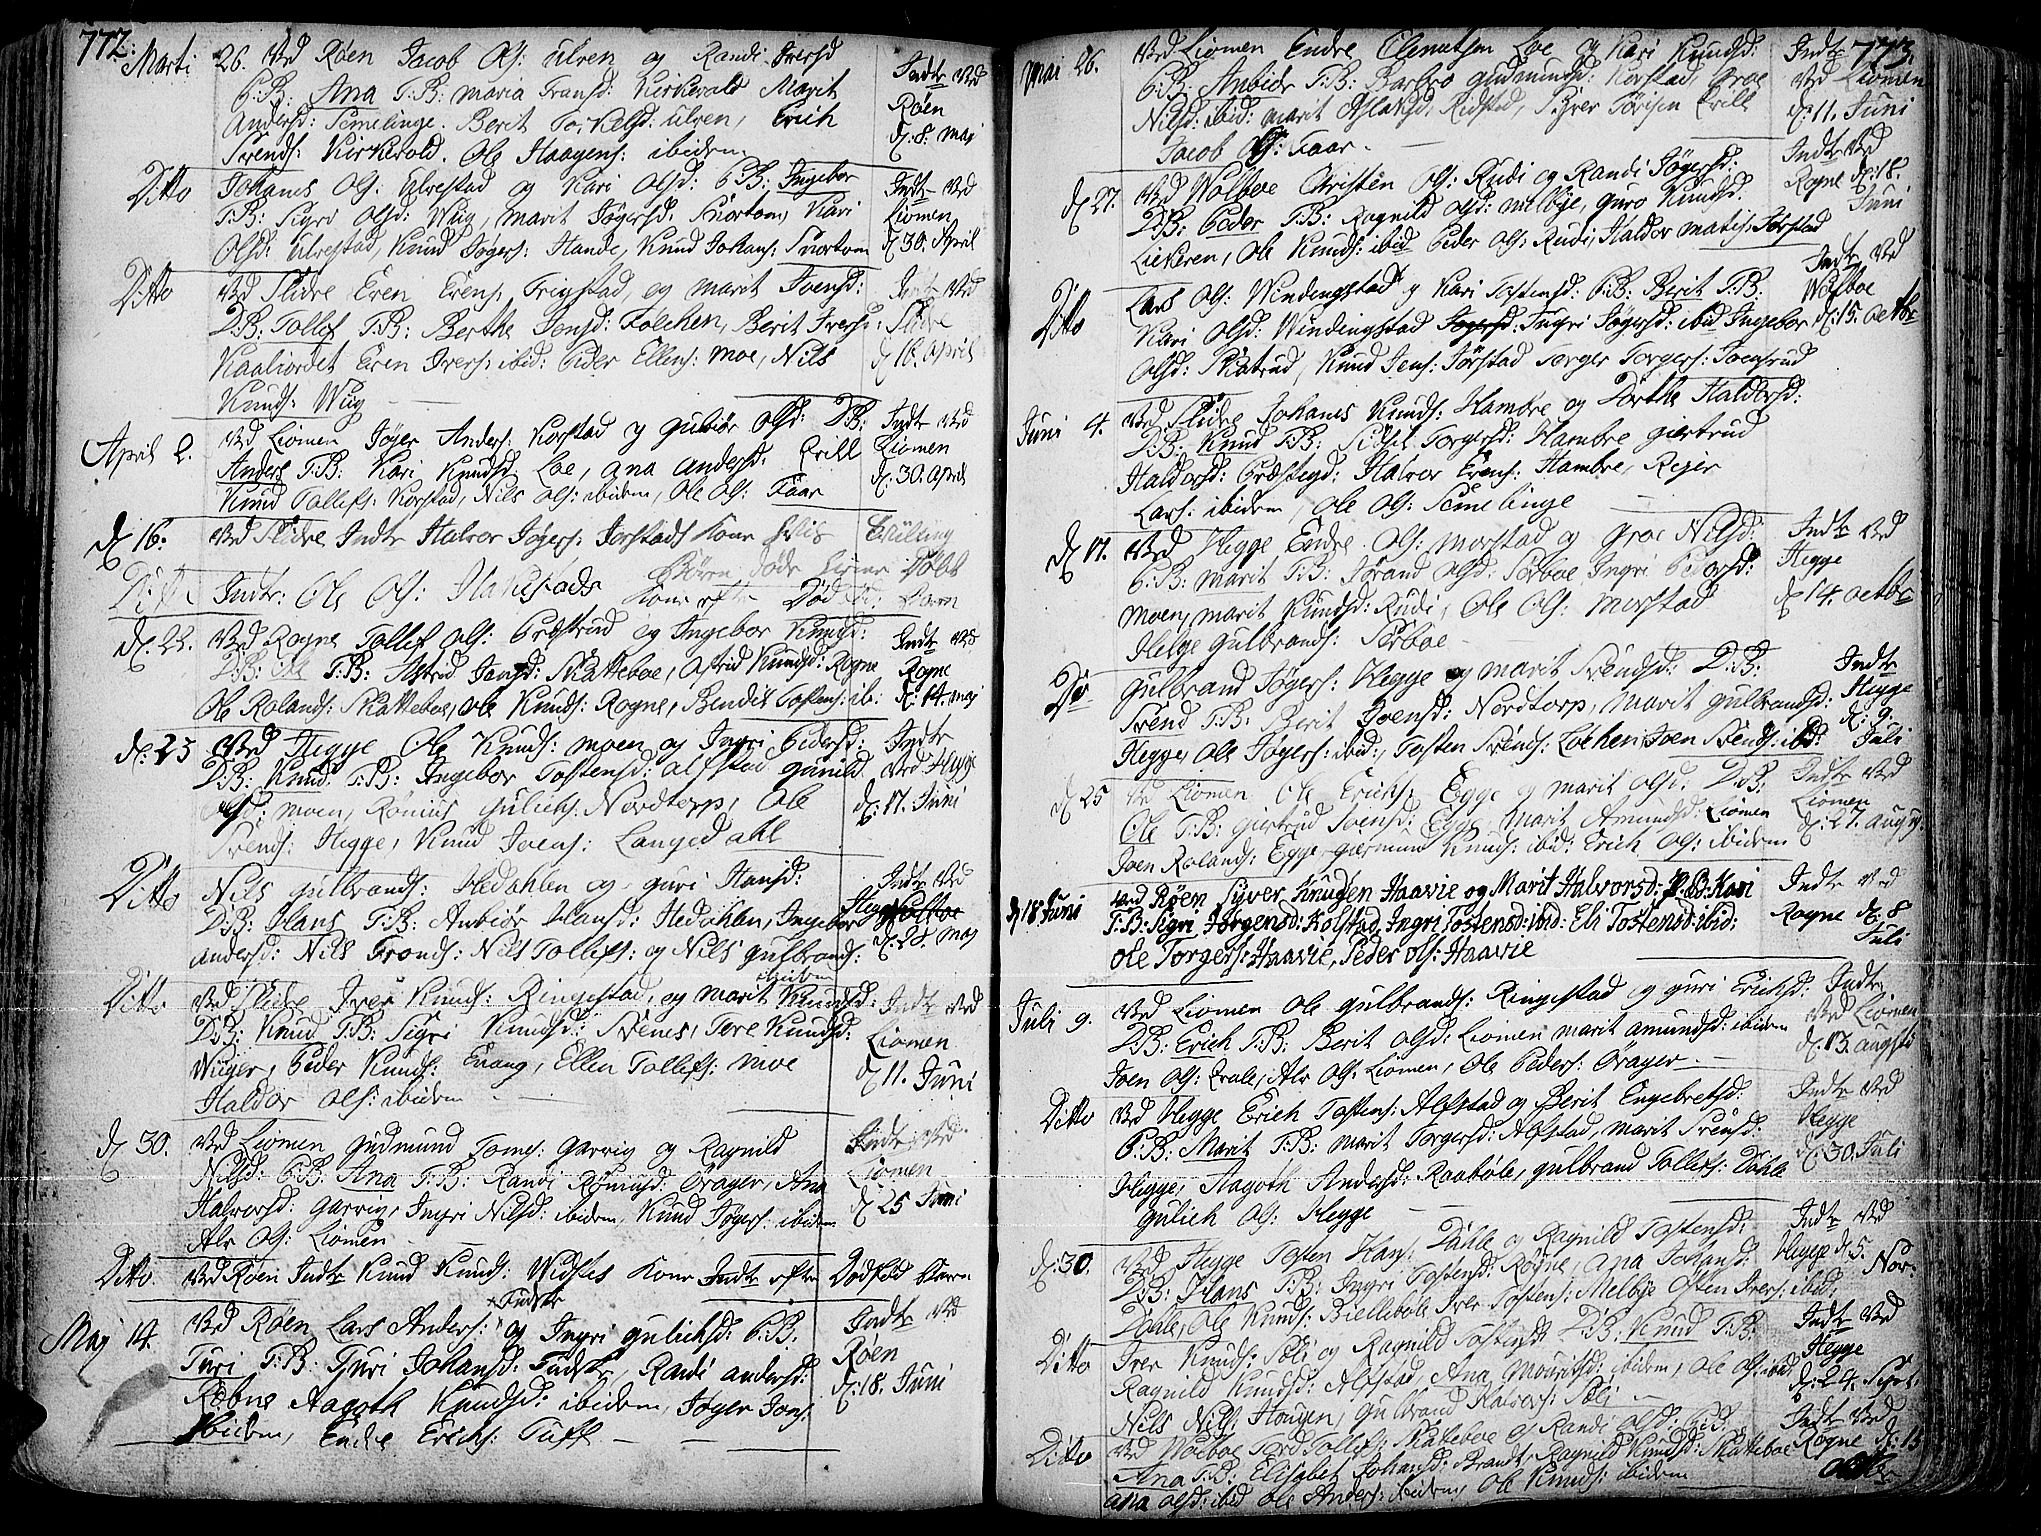 772:
Marti 26. Ved Røen Jacob Ols: Ulven og Randi Iversd
P:B: Ana T:B: Maria Fransd: Kirkevold Marit
Andersd: Semelinge. Berit Torkelsd: Ulven, Erich
Svends: Kirkevold. Ole Haagens: ibidem
Indtr Ved
Røen
d: 8: Maj
Ditto Johanes Ols: Ulvestad og Kari Olsd: P:B: Ingebor
T:B: Sigri Olsd: Wiig, Marit Jøgersd: Snortom, Kari
Olsd: Ulvestad, Knud Jøgers: Hande, Knud Johans: Snortom
Indtr Ved
Liomen
d: 30. April
Ditto Ved Slidre Even Evens: Trigstad, og Marit Ivensd:
D:B: Tollef T:B: Berthe Jensd: Folchen, Berit Ivers:
Kaaliordet Even Ivers: ibid: Peder Ellens: Moe, Nils
Knuds: Wiig
Indt Ved
Slidre
d 16. April
April 2. Ved Liomen Jøger Anders: Korstad og Gubiør Olsd: D:B:
Anders T:B: Kari Knudsd: Loe, Ana Andersd: Qvill
Knud Tollefs: Korstad, Nils Ols: ibidem, Ole Ols: Faar
Indtr Ved
Liomen
d: 30. April
d 16. Ved Slidre Indtr Halvor Jøgers: Jorstads Kone
Ditto Indtr: Ole Ols: Kone efter Død f: Barn
d: 23. Ved Rogne Tollef Ols: Præstrud og Ingebor Knudsd:
D:B: Ole T:B: Astrid Jansd: Skatteboe, Astrid Knudsd: Rogne
Ole Rolands: Skatteboe, Ole Knuds: Rogne, Bendit Tostens: ib:
Indtr Ved
Rogne
d: 14. Maj
d: 23 Ved Hegge Ole Knuds: Moen og Ingri Pedersd:
D:B: Knud T:B: Ingebor Tostensd: Alfstad Gunild
Olsd: Moen, Rømius Gulichs: Nordtorp, Ole
Svends: Hegge, Knud Ivens: Langedahl
Indtr
Ved Hegge
d: 17. Juni
Ditto Nils Gulbrands: Hedahlen og Guri Hansd:
D:B: Hans T:B: Anbiør Hansd: Hedahlen, Ingebor
Andersd: Nils Tronds: Nils Tollefs: og Nils Gulbrands:
ibidem
Indtr Ved
Hegge
d: 28. Maj
Ditto Ved Slidre Iver Knuds: Ringestad, og Marit Knudsd:
D:B: Knud T:B: Sigri Knudsd: Stenes, Tore Knudsd:
Wiiger, Peder Knuds: Evang, Ellen Tollefs: Moe
Haldor Ols: ibidem
Indtr Ved
Liomen
d 11. Juni
d 30. Ved Liomen Gudmund Toms: Garvig og Ragnild
Nilsd: P:B: Ana T:B: Randi Rømusd: Ørager, Ana
Halvorsd: Garvig, Ingri Nilsd: ibidem, Knud Jøgers: ibidem
Alv Ols: Liomen
Indtr Ved
Liomen
d: 25 Juni
Ditto. Ved Røen Indtr Knud Knuds: Kone Indtr efter Dødfød Barn
Maj 14. Ved Røen Lars Anders: og Ingri Gulichsd: P:B:
Turi T:B: Guri Johansd: Randi Andersd:
Robne Aagoth Knudsd: ibidem, Jøger Jons:
ibidem, Endre Erichs: Tuff
Indtr Ved
Røen
d: 18. Juni
773.
Mai 26. Ved Liomen Endre Clemetsen Loe og Kari Knudsd:
P:B: Anbiør T:B: Barbro Gudmundsd: Korstad, Groe
Nilsd: ibid: Marit Aslaksd, Ridstad, Syver Torisen Qvill
Jacob Ols: Faar
Indtr
Ved Liomen
d: 11. Juni
d 27. Ved Wolboe Christen Ols: Rudi og Randi Jøgersd:
D:B: Peder T:B: Ragnild Olsd: Melbye, Guro Knudsd.
Liekeren, Ole Knuds: ibid Peder Ols: Rudi, Haldor Matis: Jørstad
Indtr Ved
Rogne d: 18.
Juni
Ditto Lars Ols: Windingstad og Kari Tostensd: P:B: Berit T:B:
Kari Olsd: Windingstad Ingri Jøgersd: ibid Ingebor
Olsd: Skatrud, Knud Jens: Jørstad Torger Torgers: Joensrud
Indtr Ved
Wolboe
d: 15. Octbr
Juni 4. Ved Slidre Johanes Knuds: Hambre og Dorthe Haldorsd:
D:B: Knud T:B: Sidsel Torgersd: Hambre Giertrud
Haldorsd: Præstegd: Halvor Evens: Hambre, Rejer
Lars: ibidem, Ole Ols: Semelinge
d 17. Ved Hegge Endre Ols: Morstad og Groe Nilsd:
P:B: Marit T:B: Jørand Olsd: Sørboe Ingri Pedersd:
Moen, Marit Knudsd: Rudi, Ole Ols: Morstad
Helge Gulbrands: Sørboe
Indtr Ved
Hegge
d 14. Octbr
Do Gulbrand Jøgers: Hegge og Marit Svendsd: D:B:
Svend T:B: Berit Joensd: Nordtorp, Marit Gulbrandsd:
Hegge, Ole Jøgers: ibid:, Tosten Svends: Løchen, Joen Svends: ibd:
Indtr
Hegge
d: 9
Juli
d 25 Ved Liomen Ole Erichs: Egge og Marit Olsd. D:B:
Ole T:B: Giertrud Svensd: Egge, Marit Amundsd: Liomen
Joen Rolands: Egge, Knuds: ibid: Erich Ols: ibidem
Indtr Ved
Liomen
d: 27. Aug
d 18 Juni Ved Røen Syver Knudsen Haavie og Marit Halvorsd: P:B: Kari
T:B: Sigri Jørgensd: Kolstad, Ingri Tostensd: ibid: Eli Tostensd: ibid:
Ole Torgers: Haavie, Peder Ols: Haavie
Indtr Ved
Rogne d: 8
Juli
Juli 9. Ved Liomen Ole Gulbrands: Ringestad og Guri Erichsd:
D:B: Erich T:B: Berit Olsd: Liomen Marit Amundsd: ibidem
Joen Ols: Qvale, Alv Ols: Liomen, Ole Peders: Ørager
Indtr
Ved Liomen
d: 13. Augsti
Ditto Ved Hegge Erich Tostens: Alfstad og Berit Engebretsd:
P:B: Marit T:B: Marit Torgersd: Alfstad, Marit Svensd:
Hegge, Aagoth Andersd: Raabøle, Gulbrand Tollefs: Dahle
Gulich Ols: Hegge
Indtr Ved
Hegge
d: 30. Juli
d: 30. Ved Hegge Tosten Hans: Dahle og Ragnild Tostensd:
D:B: Hans T:B: Ingri Tostensd: Rogne, Ana Johansd:
Dahle, Ole Knuds: Biellebole Iver Tostens: Melbye Osten Ivers: ibid:
Indtr Ved
Hegge d: 5.
Nov:
Ditto Iver Knuds: Soli og Ragnild Tostensd: D:B: Knud T:B:
Ragnild Knudsd: Alfstad, Ana Mouritsd: ibidem, Ole Ols: ibid
Nils Nils: Hougen, Gulbrand Halvors: Soli
Indtr Ved
Hegge
d: 24. Sept:
Ditto Ved Wolboe Tord Tollefs: Skatteboe og Randi Olsd: P:B:
Ana T:B: Elisabet Johansd: Strandt, Ragnild Knudsd: Skatteboe
Ana Olsd: ibid Ole Anders: ibidem, Ole Knuds: ibidem
Indtr Ved
Rogne d: 15
Octbr